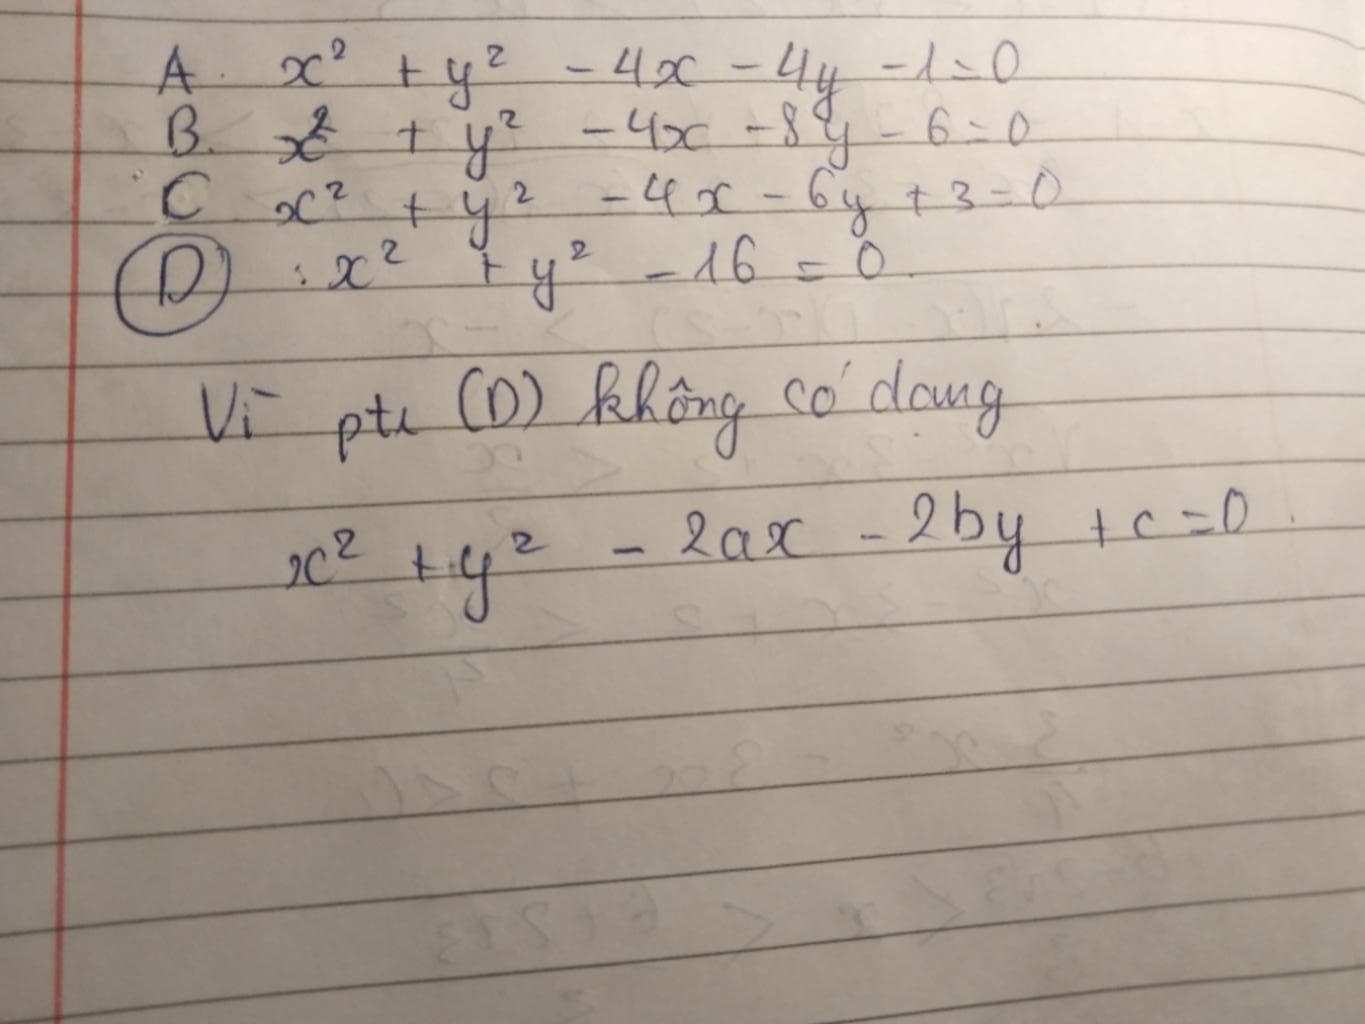 A. x² + y² - 4x - 4y - 1 = 0
B. x² + y² - 4x - 8y - 6 = 0
C x² + y² - 4x - 6y + 3 = 0
D : x² + y² - 16 = 0.
Vì ptr (D) không có dạng
x² + y² - 2ax - 2by + c = 0.